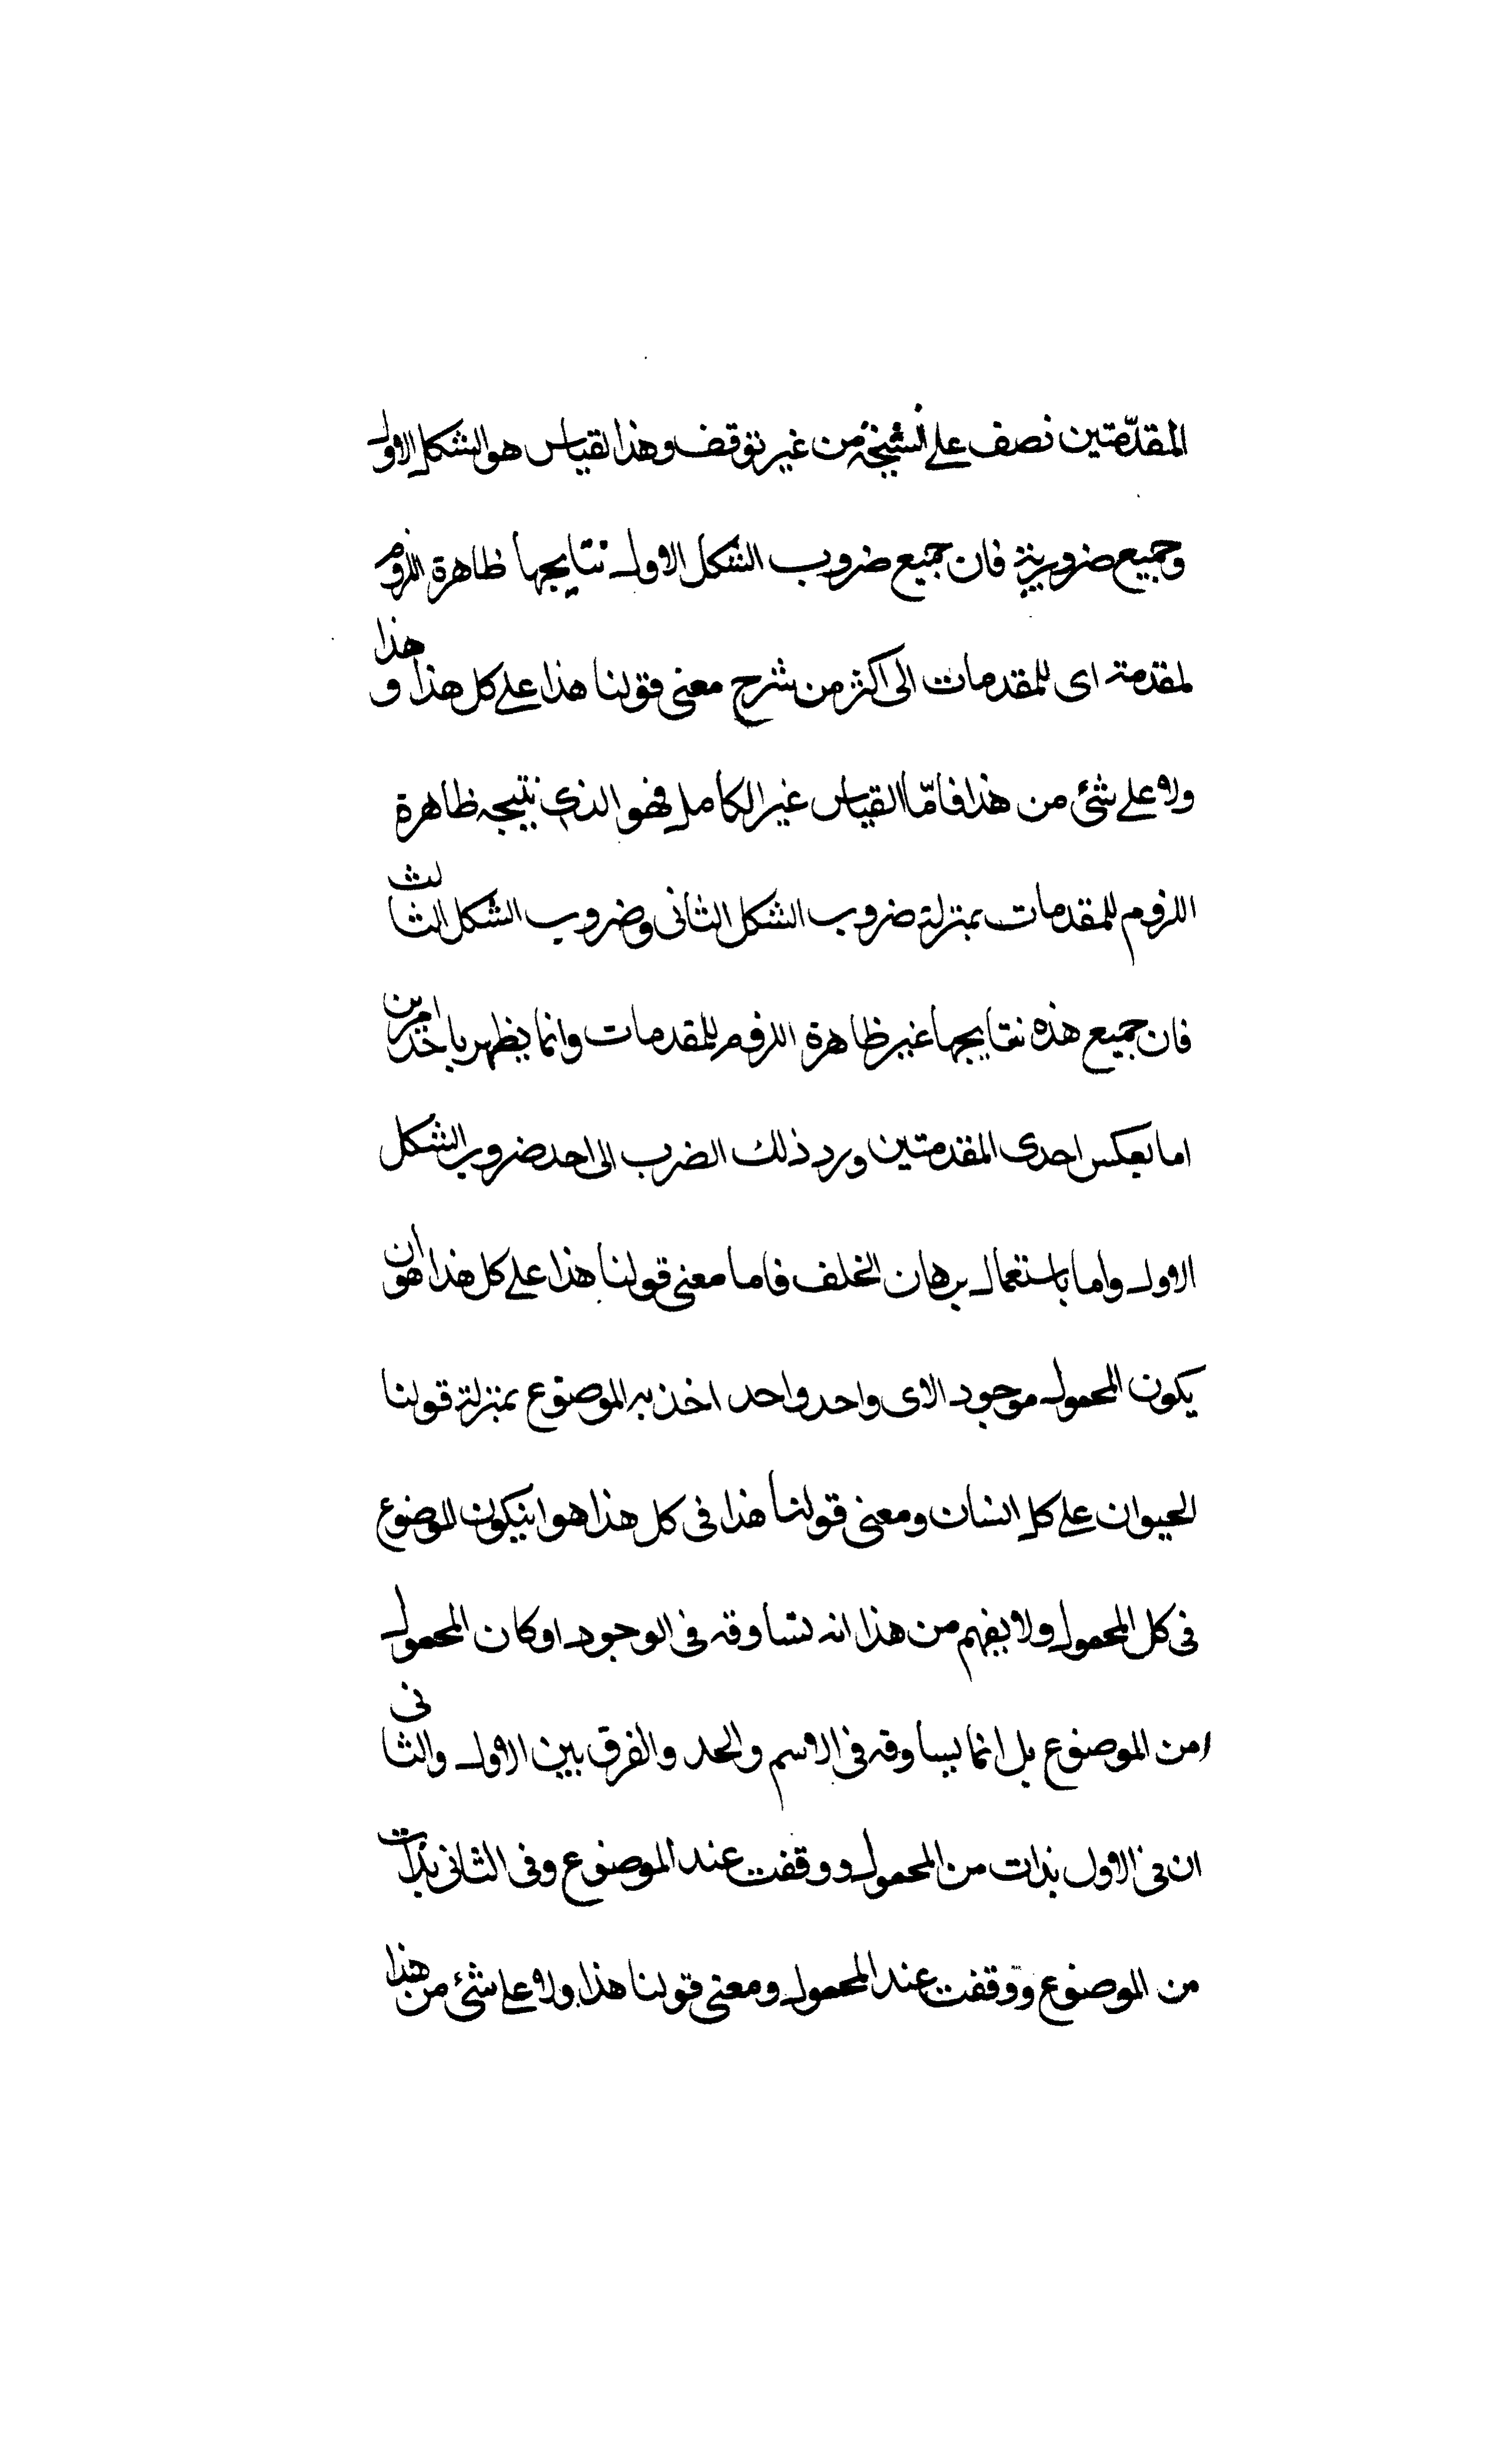 المقدّمتين نصف على نتيجة من غير توقف وهذا لقياس هو الشكل الاول
وجميع ضروبه فان جميع ضروب الشكل الاول نتايجها ظاهرة اللزوم
لمقدمة اى للمقدمات الى اكثر من شرح معنى قولنا هذا على كل هذا و هذا
ولا على شئ من هذا فامّا القياس غير الكامل فهو الذى نتيجه ظاهرة
اللزوم للمقدمات بمنزلة ضروب الشكل الثانى وضروب الشكل الثالث
فان جميع هذه نتايجها غير ظاهرة اللزوم للمقدمات وانما يظهر باحد امرين
اما بعكس احدى المقدمتين ورد ذلك الضرب الى احد ضروب الشكل
الاول واما باستعمال برهان الخلف فاما معنى قولنا هذا على كل هذا هو ان
يكون المحمول موجود الاى واحد واحد اخذ به الموضوع بمنزلة قولنا
الحيوان على كل انسان ومعنى قولنا هذا فى كل هذا هو انيكون الموضوع
فى كل المحمول ولا يفهم من هذا انه تساوقه فى الوجود او كان المحمول
امن الموضوع بل انما يساوقه فى الاسم والحد والفرق بين الاول والثانى
ان فى الاول بذات من المحمول ووقفت عند الموضوع وفى الثانى بذات
من الموضوع ووقفت عند المحمول ومعنى قولنا هذا ولا على شئ من هذا